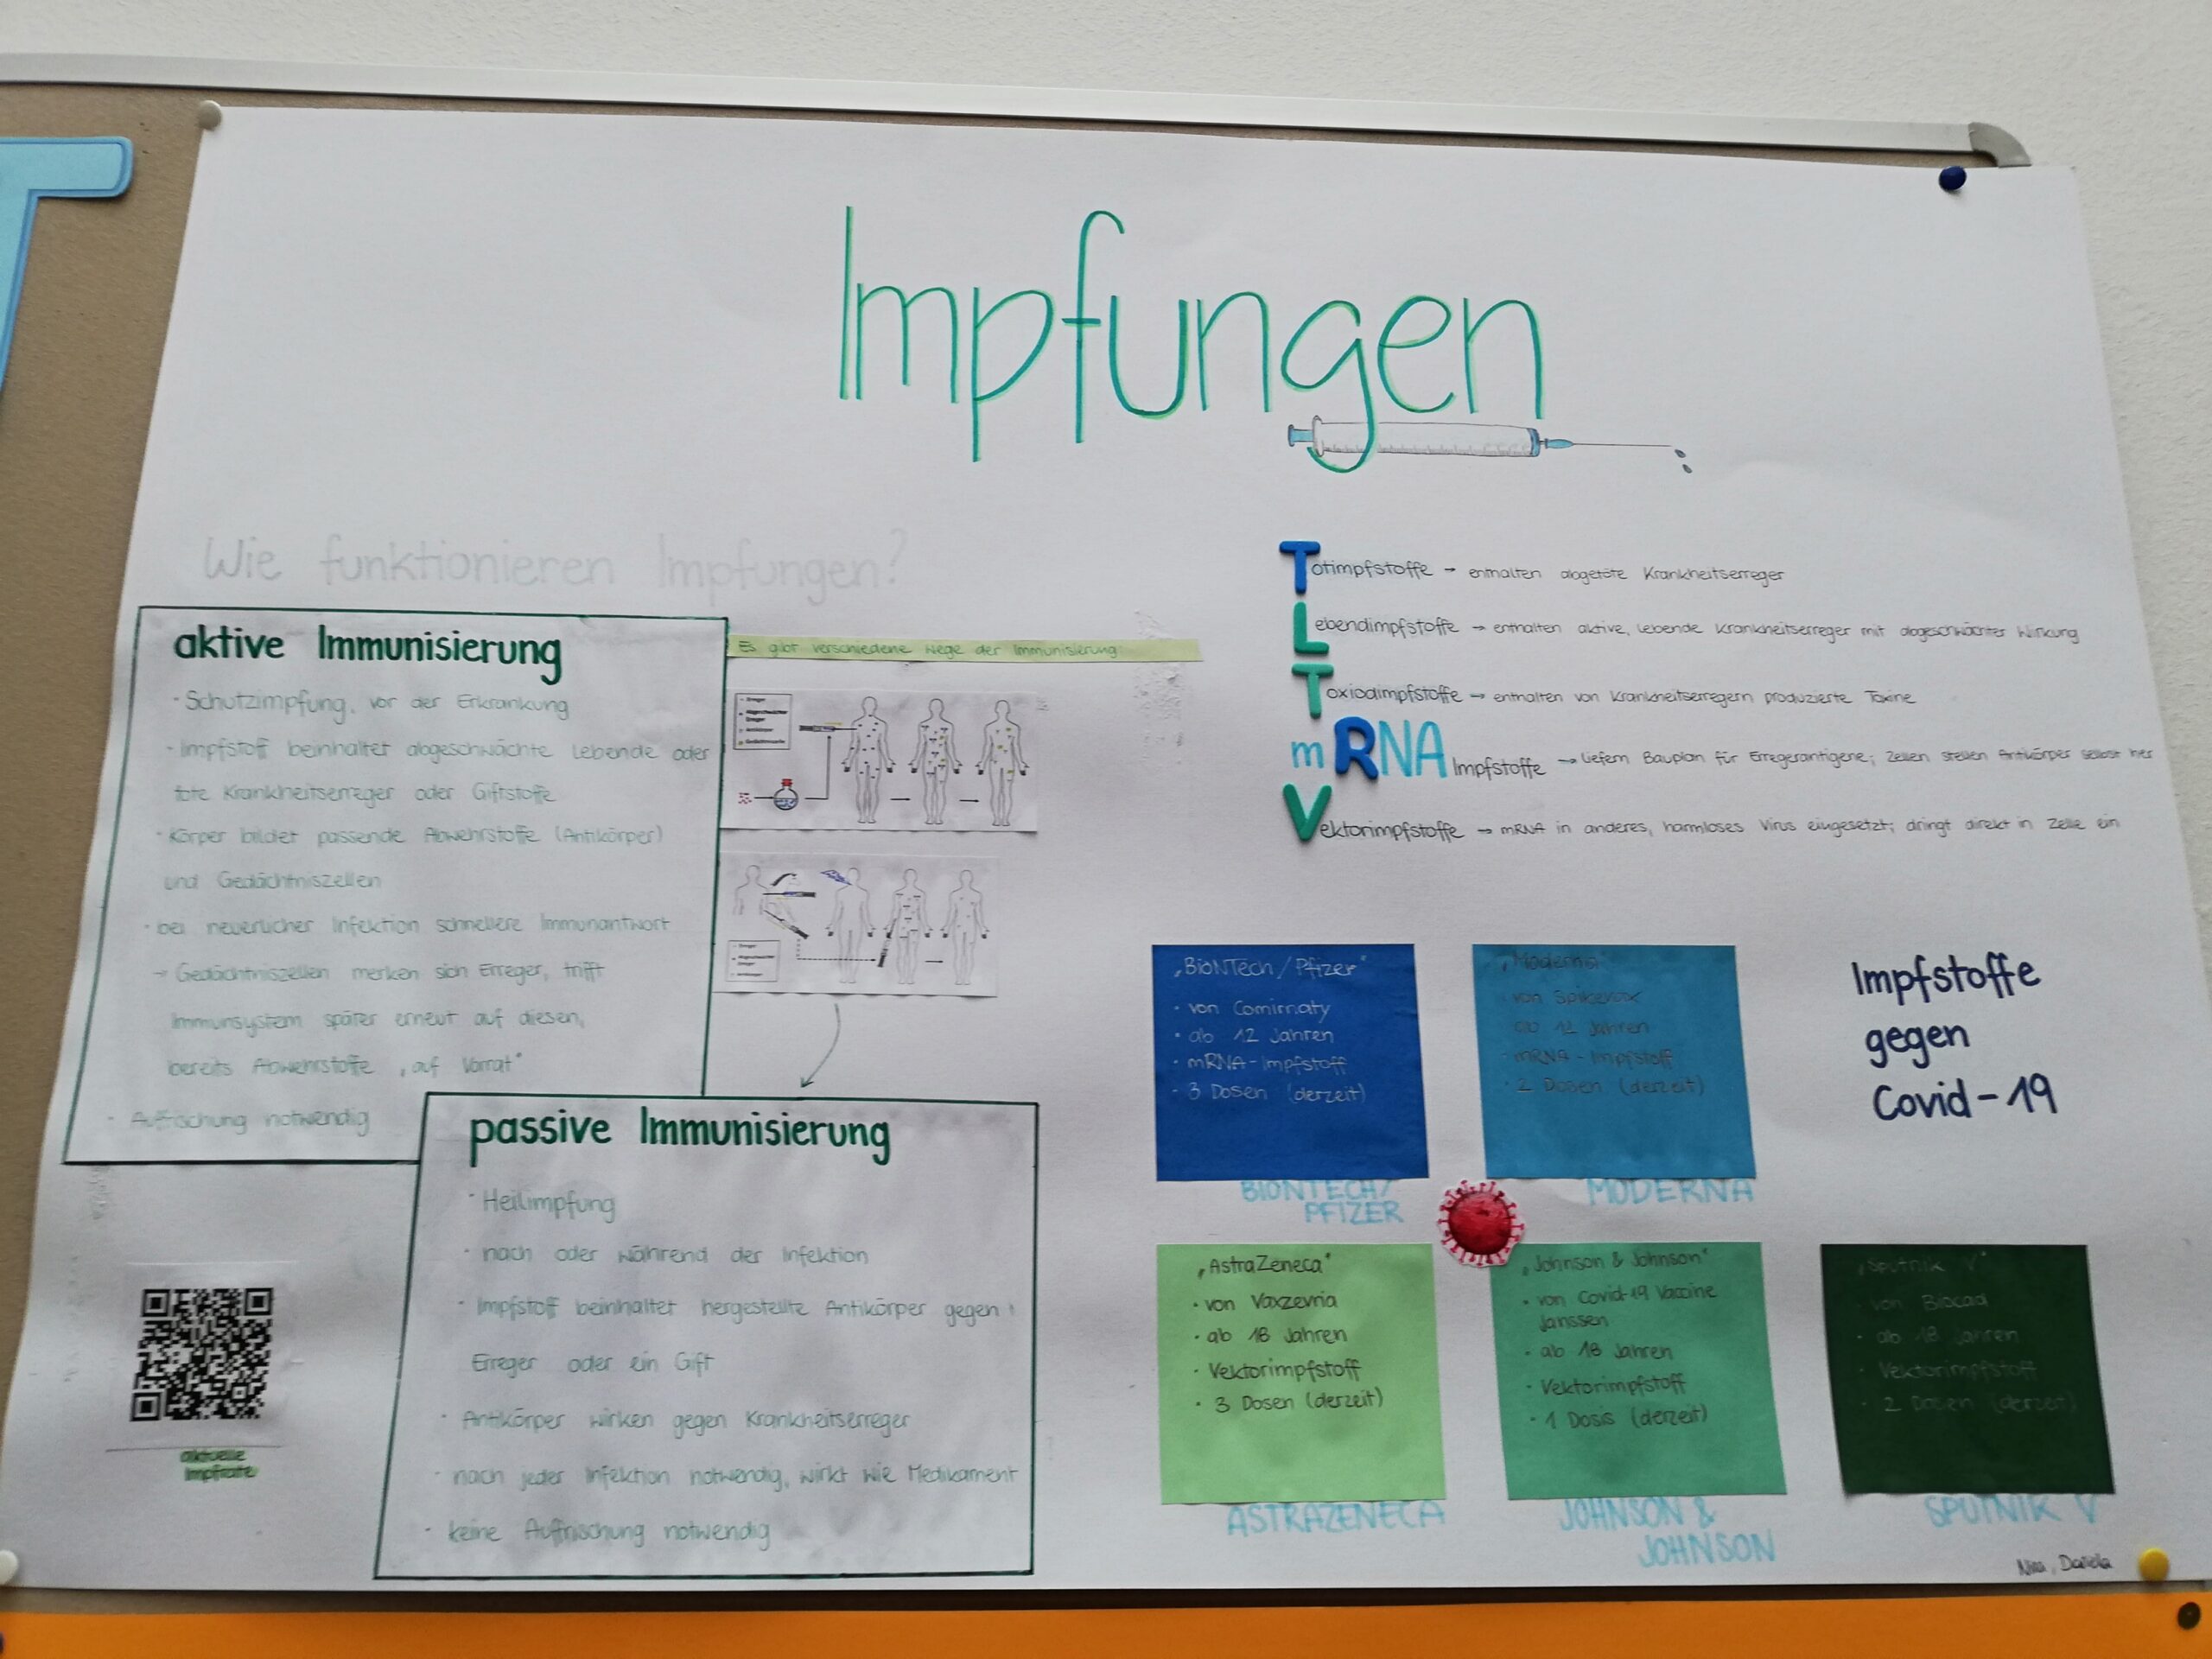 Impfungen
Wie funktionieren Impfungen?
aktive Immunisierung
· Schutzimpfung, vor der Erkrankung
· Impfstoff beinhaltet abgeschwächte lebende oder
tote Krankheitserreger oder Giftstoffe
· Körper bildet passende Abwehrstoffe (Antikörper)
und Gedächtniszellen
· bei neuerlicher Infektion schnellere Immunantwort
→ Gedächtniszellen merken sich Erreger, trifft
Immunsystem später erneut auf diesen,
bereits Abwehrstoffe „auf Vorrat"
· Auffrischung notwendig
Es gibt verschiedene Wege der Immunisierung:
passive Immunisierung
· Heilimpfung
· nach oder während der Infektion
· Impfstoff beinhaltet hergestellte Antikörper gegen
Erreger oder ein Gift
· Antikörper wirken gegen Krankheitserreger
· nach jeder Infektion notwendig, wirkt wie Medikament
· keine Auffrischung notwendig
aktuelle
Impfrate
Totimpfstoffe → enthalten abgetöte Krankheitserreger
Lebendimpfstoffe → enthalten aktive, lebende Krankheitserreger mit abgeschwächter Wirkung
Toxiodimpfstoffe → enthalten von Krankheitserregern produzierte Toxine
mRNA Impfstoffe → liefern Bauplan für Erregerantigene; Zellen stellen Antikörper selbst her
Vektorimpfstoffe → mRNA in anderes, harmloses Virus eingesetzt; dringt direkt in Zelle ein
Impfstoffe
gegen
Covid-19
„BioNTech/Pfizer"
· von Comirnaty
· ab 12 Jahren
· mRNA-Impfstoff
· 3 Dosen (derzeit)
BIONTECH/
PFIZER
„Moderna"
· von Spikevax
· ab 12 Jahren
· mRNA-Impfstoff
· 2 Dosen (derzeit)
MODERNA
„AstraZeneca"
· von Vaxzevria
· ab 18 Jahren
· Vektorimpfstoff
· 3 Dosen (derzeit)
ASTRAZENECA
„Johnson & Johnson"
· von Covid-19 Vaccine
Janssen
· ab 18 Jahren
· Vektorimpfstoff
· 1 Dosis (derzeit)
JOHNSON &
JOHNSON
„Sputnik V"
· von Biocad
· ab 18 Jahren
· Vektorimpfstoff
· 2 Dosen (derzeit)
SPUTNIK V
Daniela